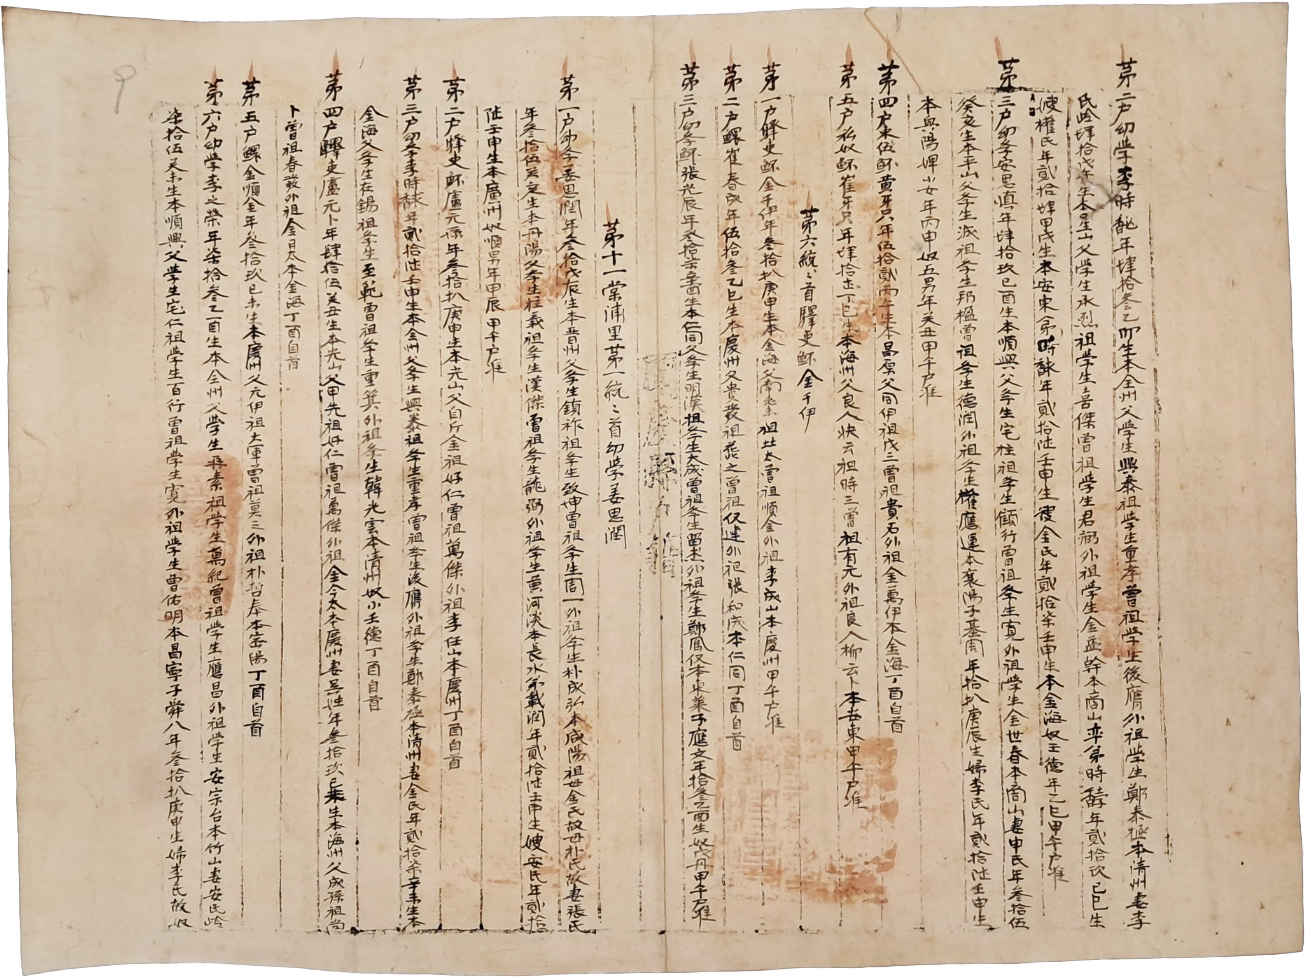 第二戶幼學李時馝年肆拾參乙卯生本全州父學生興泰祖學生重孝曾祖學生後膺外祖學生鄭泰極本淸州妻李
氏齡肆拾戊午生本星山父學生永烈祖學生喜傑曾祖學生君弼外祖學生金孟幹本商山率弟時馩年貳拾玖己巳生
嫂權氏年貳拾肆甲戌生本安東弟時馦年貳拾陸壬申生嫂金氏年貳拾柒壬申生本金海奴壬德年乙巳甲午戶准
第三戶幼學安思愼年肆拾玖己酉生本順興父學生宅柱祖學生顧行曾祖學生寬外祖學生金世春本商山妻申氏年參拾伍
癸亥生本平山父學生渽祖學生邦楹曾祖學生德閏外祖學生權應運本襄陽子基周年拾捌庚辰生婦李氏年貳拾陸壬申生
本興陽婢小女年丙申奴五男年癸丑甲午戶准
第四戶束伍鰥黃哥只年伍拾貳丙午生本昌原父同伊祖戊二曾祖貴石外祖金二萬伊本金海丁酉自首
第五戶私奴鰥崔哥只年肆拾壹丁巳生本海州父良人快云祖時三曾祖有元外祖良人柳云卜本安東甲午戶准
第六統統首驛吏鰥金千伊
第一戶驛吏鰥金千伊年參拾捌庚申生本金海父南業祖壯太曾祖順金外祖李成山本慶州甲午戶准
第二戶鰥崔春成年伍拾參乙巳生本慶州父貴發祖花之曾祖仅達外祖張和成本仁同丁酉自首
第三戶幼學鰥張光辰年參拾柒辛酉生本仁同父學生明漢祖學生大成曾祖學生曾杰外祖學生鄭鳳仅本東萊子應文年拾參乙酉生奴丹甲午戶准
第十一棠浦里第一統統首幼學姜思閏
第一戶幼學姜思閏年參拾戊辰生本晉州父學生鎭祚祖學生致坤曾祖學生周一外祖學生朴成弘本咸陽祖母金氏故母朴氏故妻張氏
年參拾伍癸亥生本丹陽父學生柱義祖學生漢傑曾祖學生龍弼外祖學生黃河淡本長水弟載閏年貳拾陸壬申生嫂安氏年貳拾
陸壬申生本廣州奴順男年甲辰甲午戶准
第二戶驛吏鰥盧元孫年參拾捌庚申生本光山父自斤金祖好仁曾祖萬傑外祖李任山本慶州丁酉自首
第三戶幼學李時馡年貳拾陸壬申生本全州父學生興泰祖學生重孝曾祖學生後膺外祖學生鄭泰極本淸州妻金氏年貳拾柒辛未生本
金海父學生在錫祖學生至範曾祖學生重箕外祖學生韓光雲本淸州奴小壬德丁酉自首
第四戶驛吏盧元卜年肆拾伍癸丑生本光山父甲先祖好仁曾祖萬傑外祖金今太本慶州妻吳姓年參拾玖己未生本海州父成孫祖尚
卜曾祖春發外祖金日太本金海丁酉自首
第五戶鰥金順金年參拾玖己未生本慶州父元伊祖大軍曾祖莫三外祖朴哲奉本密陽丁酉自首
第六戶幼學李之榮年柒拾參乙酉生本全州父學生再素祖學生萬紀曾祖學生應昌外祖學生安宗台本竹山妻安氏齡
柒拾伍癸未生本順興父學生宅仁祖學生百行曾祖學生寬外祖學生曺佑明本昌寧子舜八年參拾捌庚申生婦李氏故奴